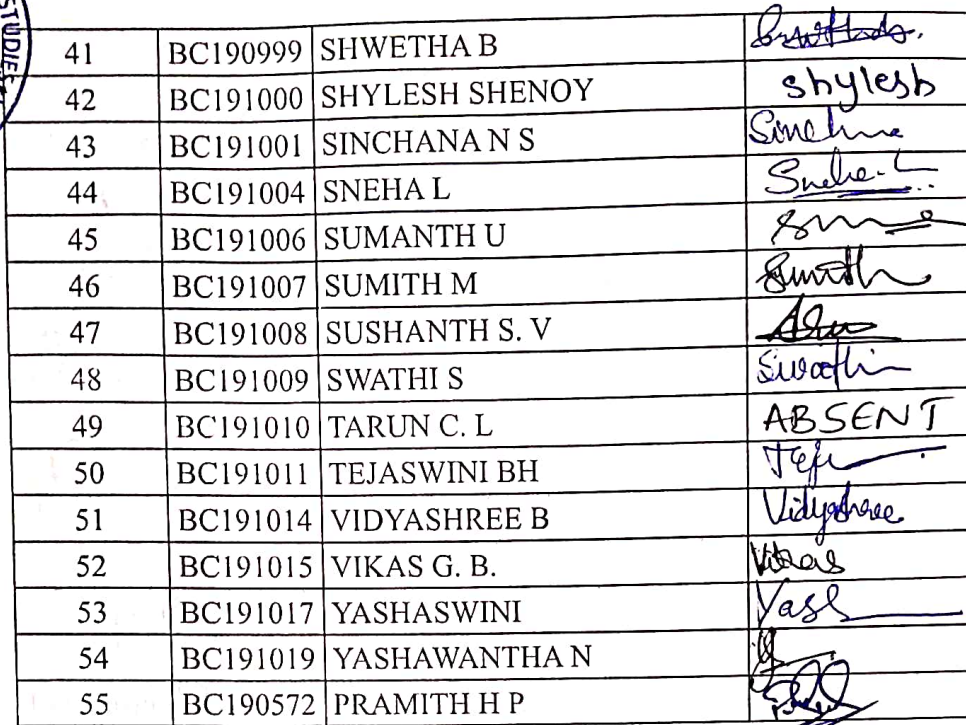 STUDIES
41 BC190999 SHWETHA B
42 BC191000 SHYLESH SHENOY Shylesh
43 BC191001 SINCHANA N S
44 BC191004 SNEHA L Sneha. L
45 BC191006 SUMANTH U
46 BC191007 SUMITH M Sumith
47 BC191008 SUSHANTH S. V
48 BC191009 SWATHI S Swathi
49 BC191010 TARUN C. L ABSENT
50 BC191011 TEJASWINI BH
51 BC191014 VIDYASHREE B Vidyashree
52 BC191015 VIKAS G. B. Vikas
53 BC191017 YASHASWINI Yash
54 BC191019 YASHAWANTHA N
55 BC190572 PRAMITH H P